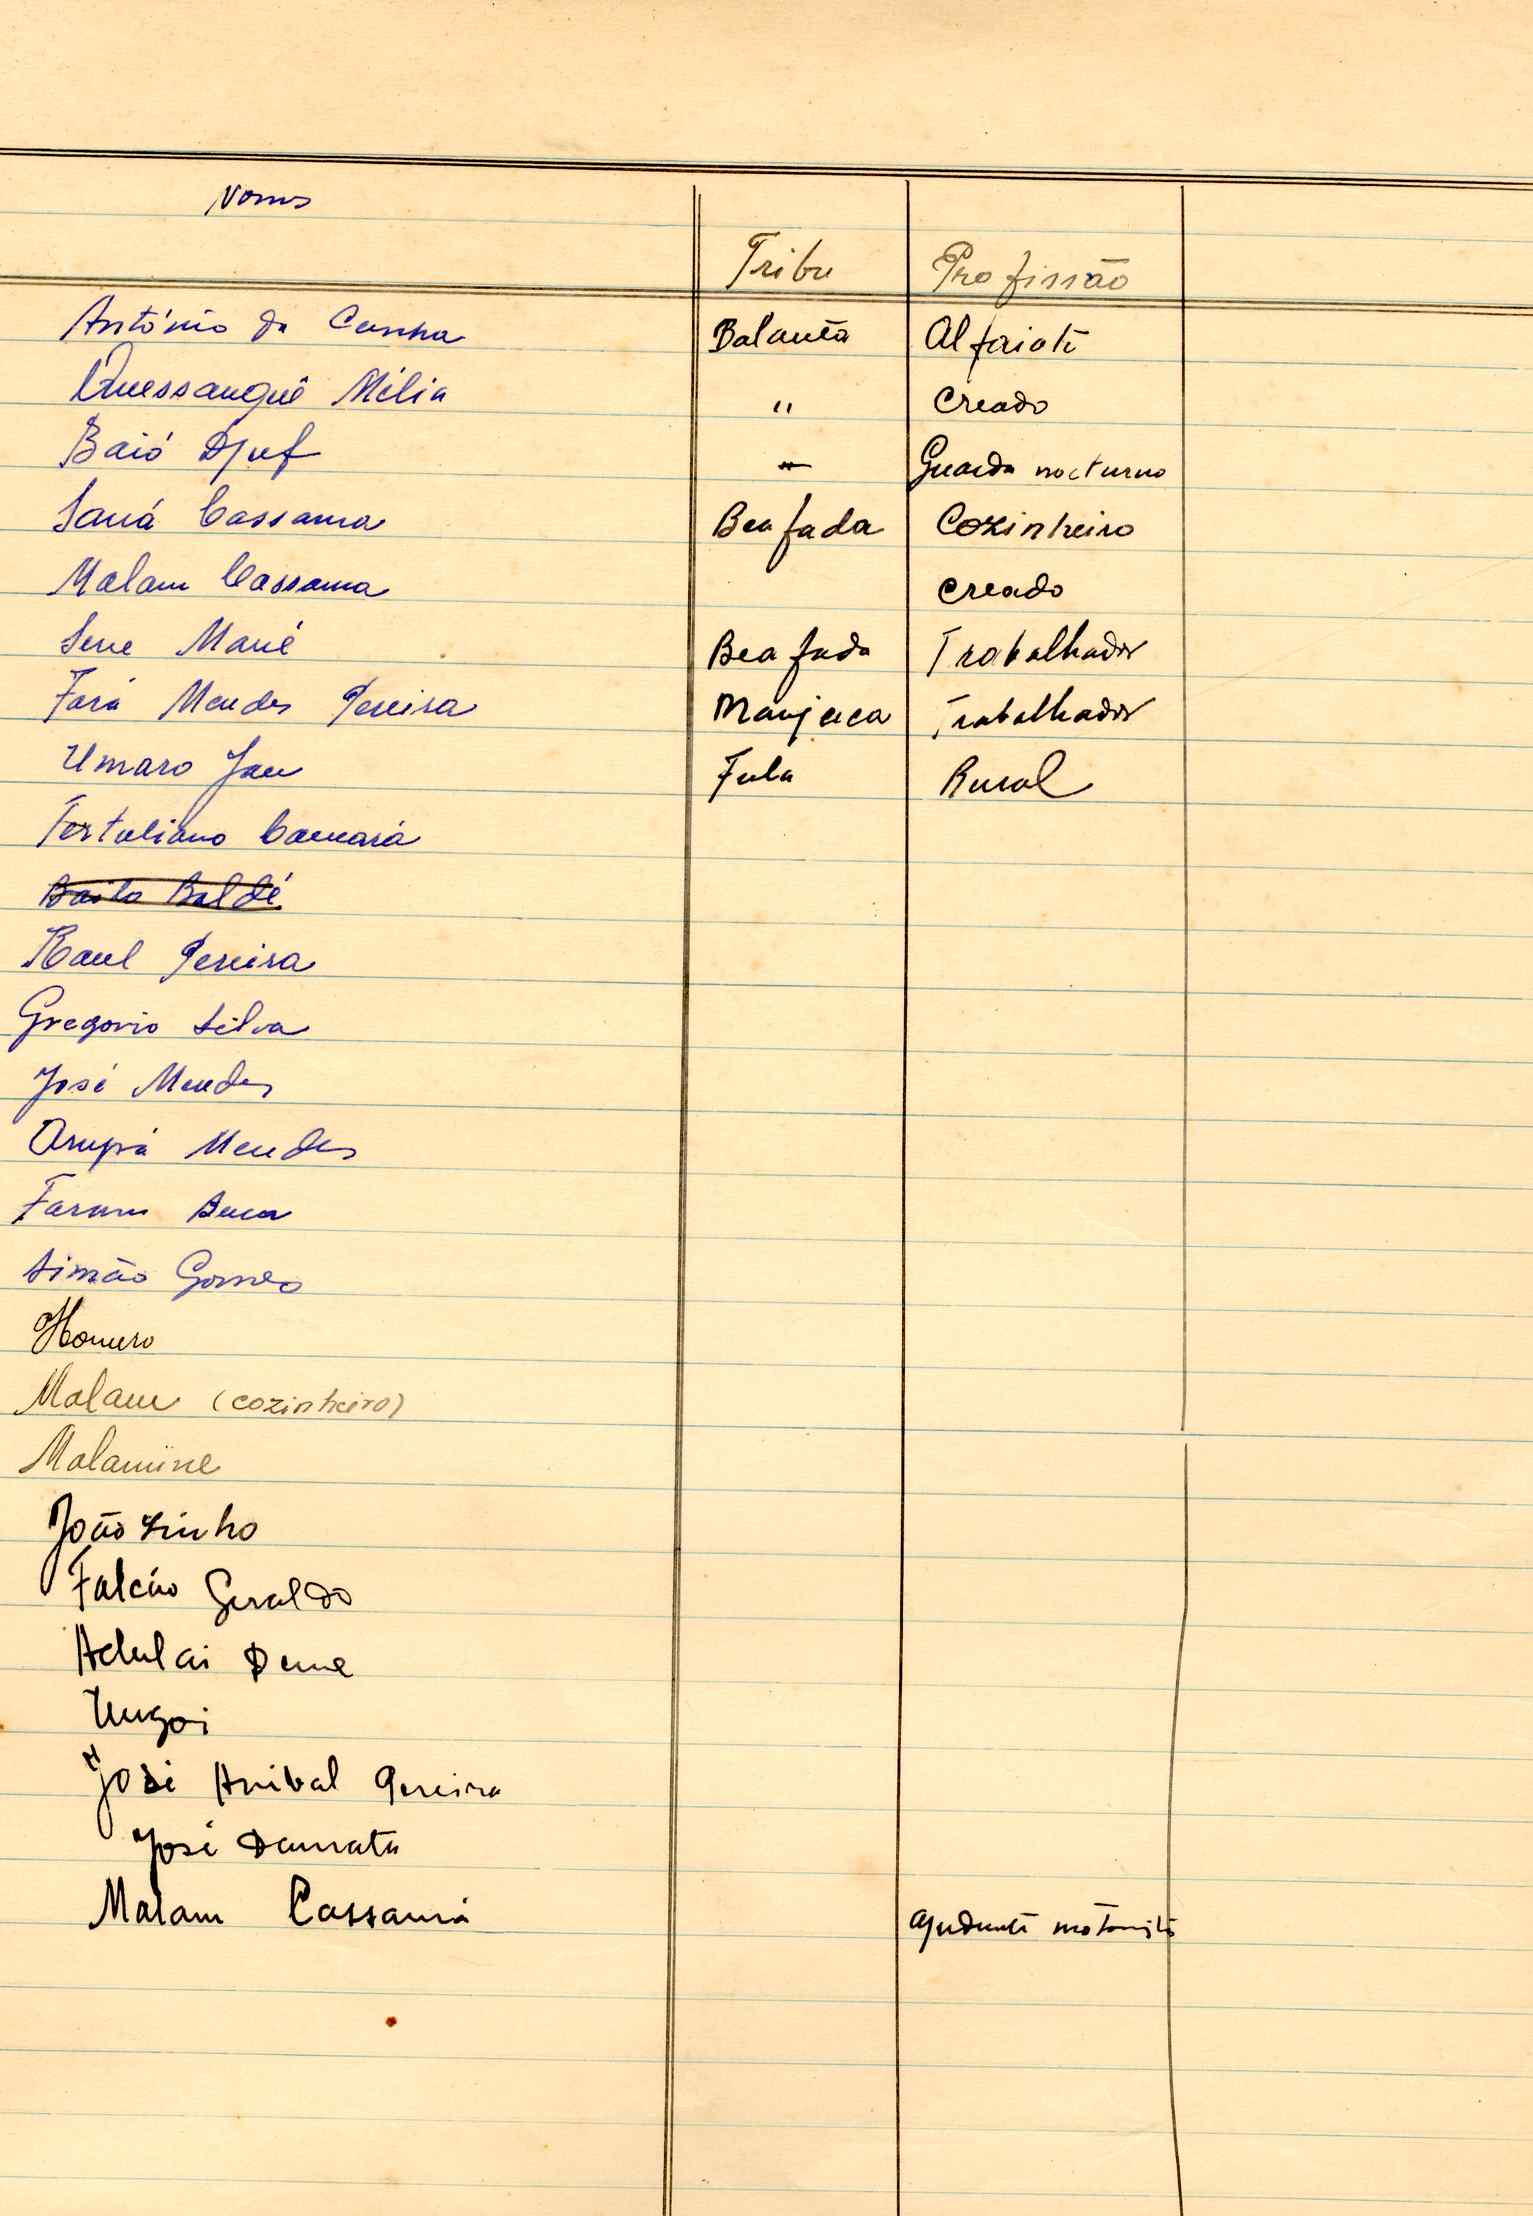 Nomes
Tribu Profissão
António da Cunha Balanta Alfaiate
Quessangué Mélia " Creado
Baió Djuf " Guarda nocturno
Saná Cassama Beafada Cozinheiro
Malam Cassama Creado
Sene Mané Beafada Trabalhador
Fará Mendes Pereira Manjaca Trabalhador
Umaro Jau Fula Rural
Tertuliano Camará
Bailo Baldé
Raul Pereira
Gregorio Silva
José Mendes
Mendes
Simão Gomes
Homero
Malam (cozinheiro)
Malamine
Joãozinho
Falcão Geraldo
Adulai Deme
José Anibal Pereira
José Damata
Malam Cassamá ajudante motorista